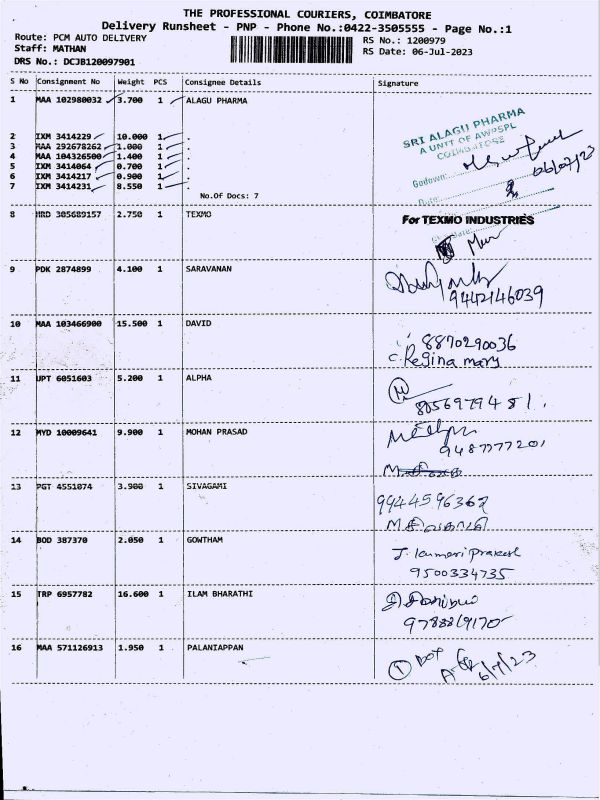 THE PROFESSIONAL COURIERS, COIMBATORE
Delivery Runsheet - PNP - Phone No.:0422-3505555 - Page No.:1
Route: PCM AUTO DELIVERY
RS No.: 1200979
Staff: MATHAN
RS Date: 06-Jul-2023
DRS No.: DCJB120097901
S No Consignment No Weight PCS Consignee Details Signature
1 MAA 102980032 3.700 1 ALAGU PHARMA
SRI ALAGU PHARMA
A UNIT OF AWPSPL
COIMBATORE
2 IXM 3414229 10.000 1 .
3 MAA 292678262 1.000 1 .
4 MAA 104326500 1.400 1 .
5 IXM 3414064 0.700 1 .
6 IXM 3414217 0.900 1 .
7 IXM 3414231 8.550 1 .
Godown:
06/07/23
Date:
No.Of Docs: 7
8 HRD 305689157 2.750 1 TEXMO
For TEXMO INDUSTRIES
9 PDK 2874899 4.100 1 SARAVANAN
9442146039
10 MAA 103466900 15.500 1 DAVID
8870290036
C. Regina mary
11 UPT 6051603 5.200 1 ALPHA
8056979481.
12 MYD 10009641 9.900 1 MOHAN PRASAD
9487777201
13 PGT 4551074 3.900 1 SIVAGAMI
9944596362
M.சிவகாமி
14 BOD 387370 2.050 1 GOWTHAM
9500334735
15 TRP 6957782 16.600 1 ILAM BHARATHI
9788869170
16 MAA 571126913 1.950 1 PALANIAPPAN
6/7/23